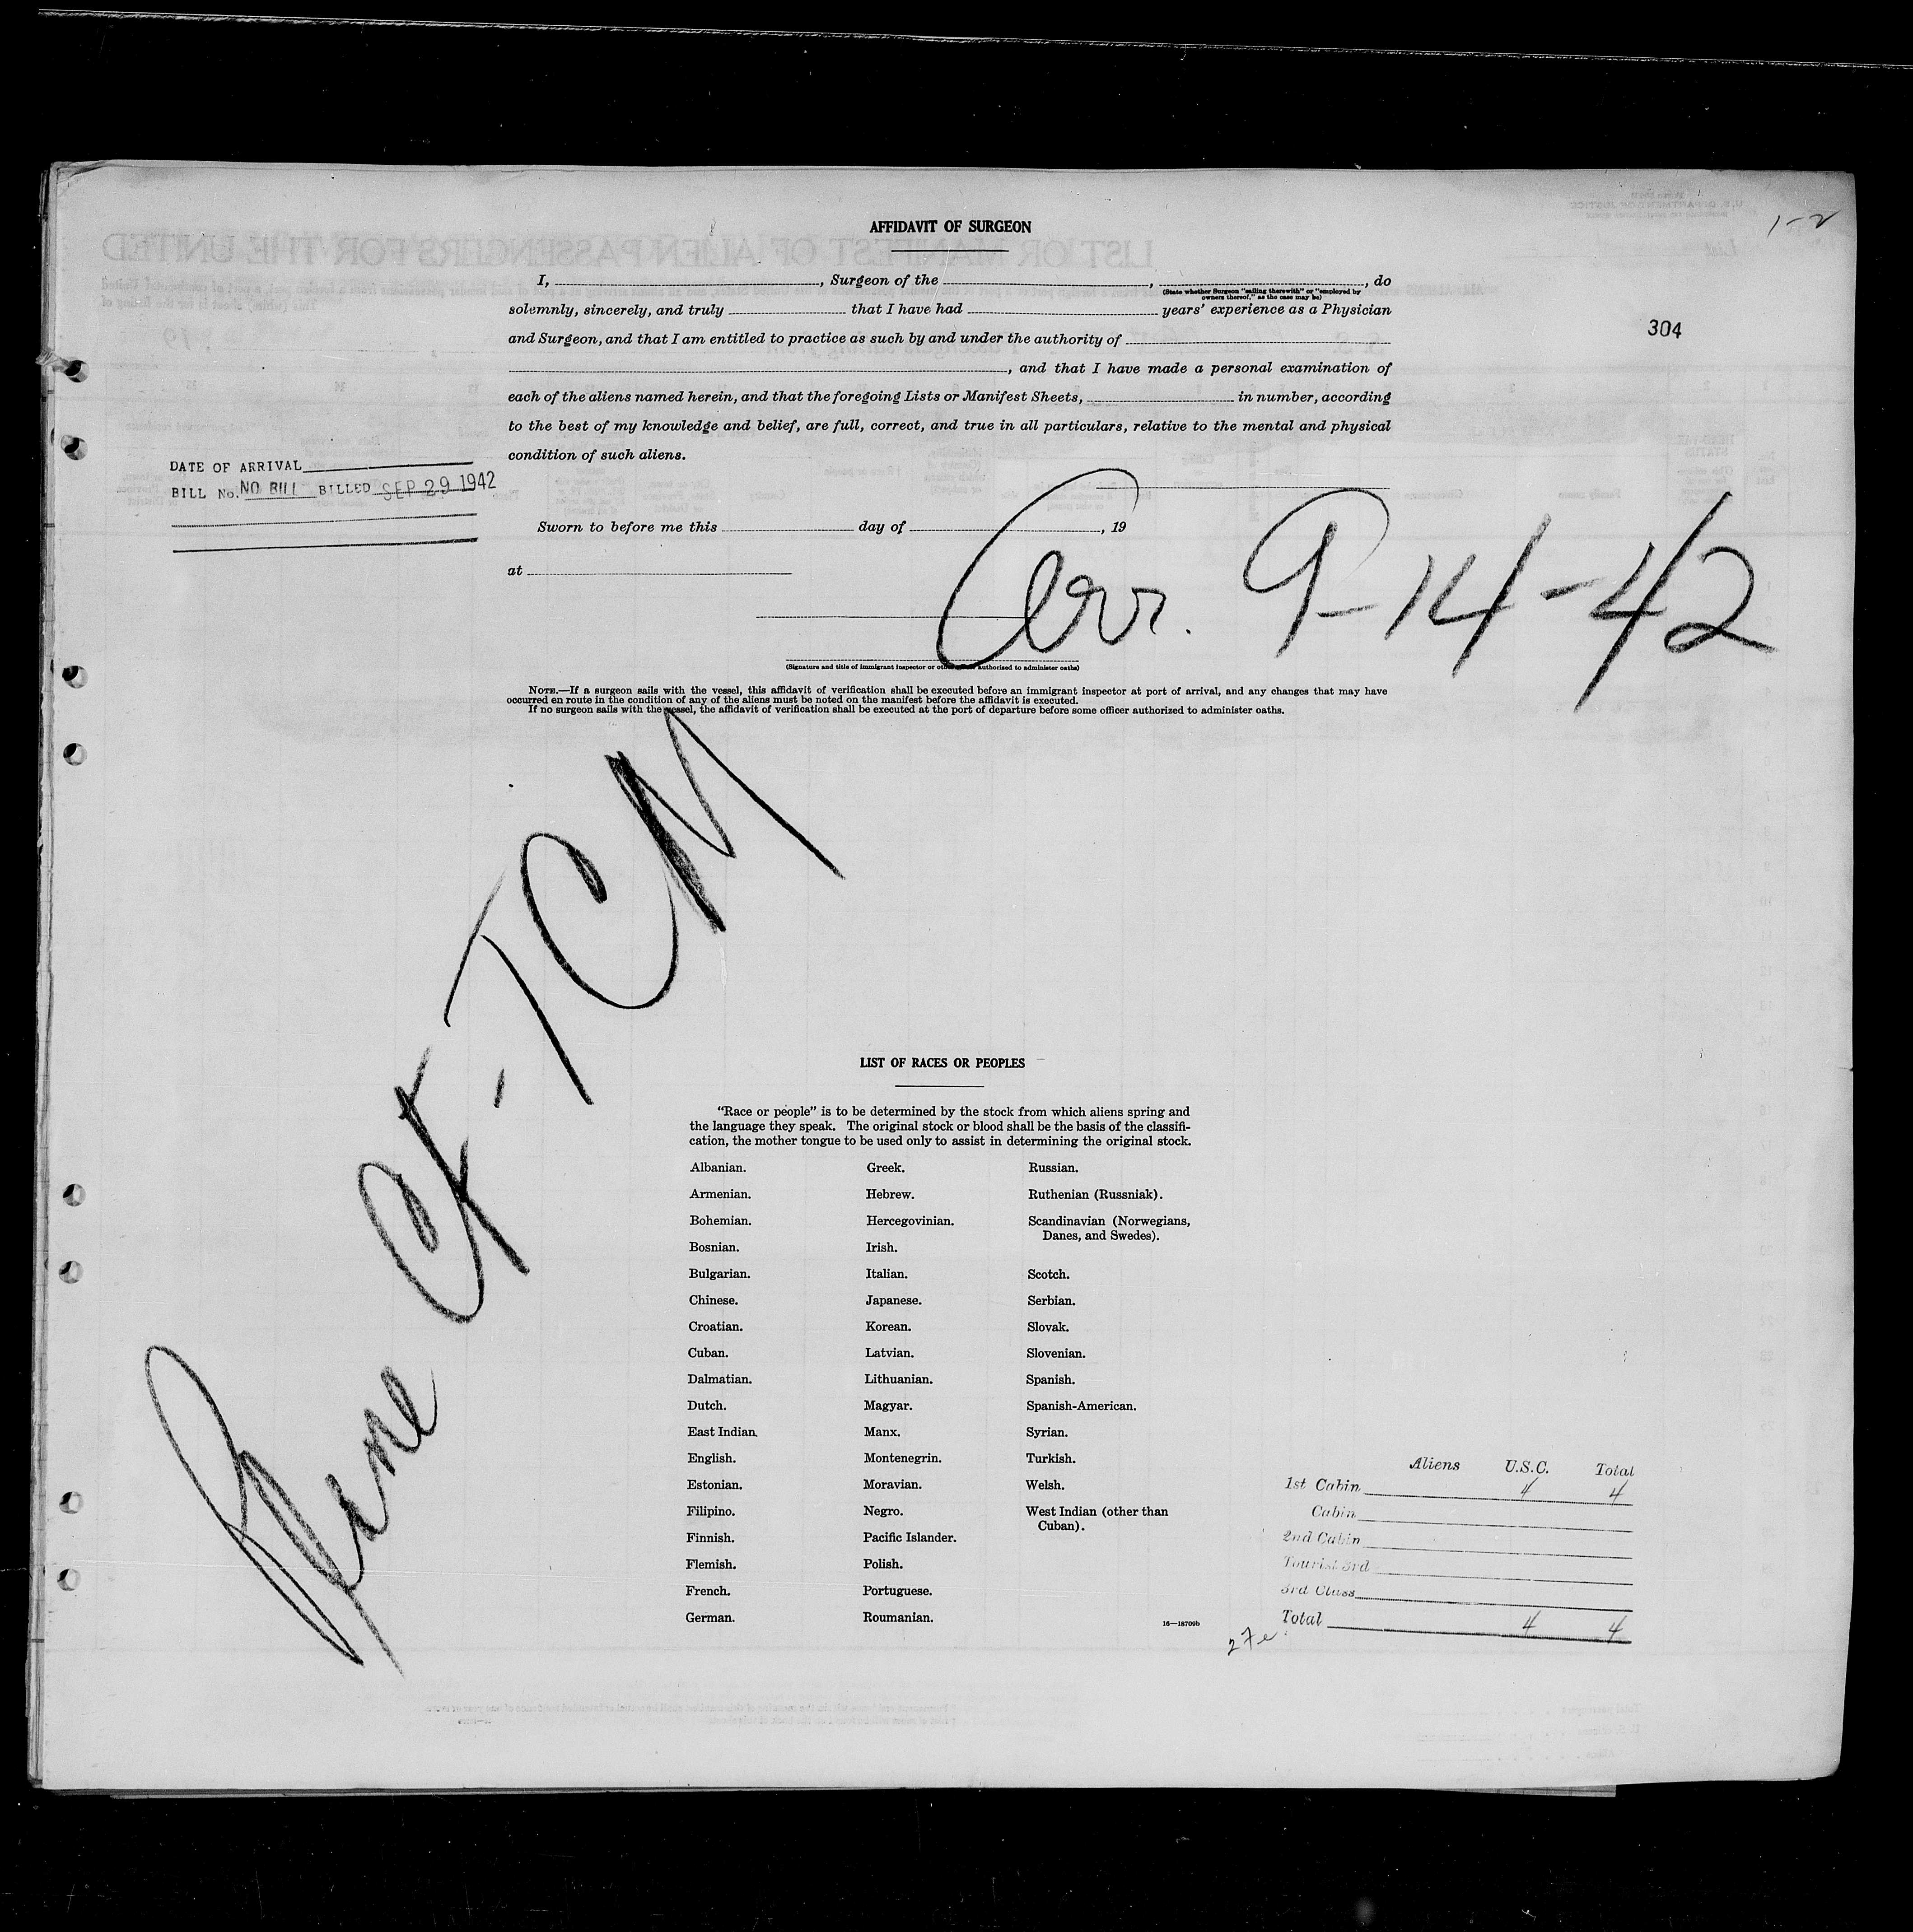 1-2
AFFIDAVIT OF SURGEON
I, , Surgeon of the , , do
(State whether Surgeon "sailing therewith" or "employed by
owners thereof," as the case may be)
solemnly, sincerely, and truly that I have had years' experience as a Physician
304
and Surgeon, and that I am entitled to practice as such by and under the authority of
, and that I have made a personal examination of
each of the aliens named herein, and that the foregoing Lists or Manifest Sheets, in number, according
to the best of my knowledge and belief, are full, correct, and true in all particulars, relative to the mental and physical
condition of such aliens.
DATE OF ARRIVAL
BILL No. NO BILL BILLED SEP 29 1942
Sworn to before me this day of , 19
at
Arr. 9-14-42
(Signature and title of immigrant inspector or other officer authorized to administer oaths)
NOTE.—If a surgeon sails with the vessel, this affidavit of verification shall be executed before an immigrant inspector at port of arrival, and any changes that may have
occurred en route in the condition of any of the aliens must be noted on the manifest before the affidavit is executed.
If no surgeon sails with the vessel, the affidavit of verification shall be executed at the port of departure before some officer authorized to administer oaths.
Plane CK-TCM
LIST OF RACES OR PEOPLES
"Race or people" is to be determined by the stock from which aliens spring and
the language they speak. The original stock or blood shall be the basis of the classifi-
cation, the mother tongue to be used only to assist in determining the original stock.
Albanian.
Armenian.
Bohemian.
Bosnian.
Bulgarian.
Chinese.
Croatian.
Cuban.
Dalmatian.
Dutch.
East Indian.
English.
Estonian.
Filipino.
Finnish.
Flemish.
French.
German.
Greek.
Hebrew.
Hercegovinian.
Irish.
Italian.
Japanese.
Korean.
Latvian.
Lithuanian.
Magyar.
Manx.
Montenegrin.
Moravian.
Negro.
Pacific Islander.
Polish.
Portuguese.
Roumanian.
Russian.
Ruthenian (Russniak).
Scandinavian (Norwegians,
Danes, and Swedes).
Scotch.
Serbian.
Slovak.
Slovenian.
Spanish.
Spanish-American.
Syrian.
Turkish.
Welsh.
West Indian (other than
Cuban).
16—18709b
Aliens U.S.C. Total
1st Cabin 4 4
Cabin
2nd Cabin
Tourist 3rd
3rd Class
Total 4 4